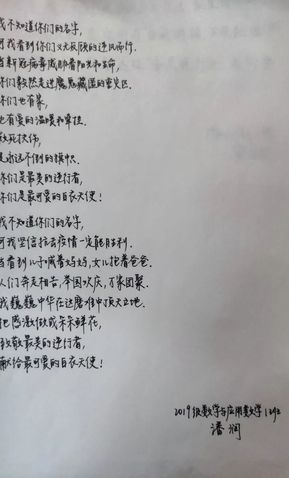 我不知道你们的名字,
可我看到你们义无反顾的逆风而行.
当新冠病毒威胁着阳光和生命,
你们毅然走进魔鬼藏匿的重灾区.
你们也有家,
也有爱的温暖和牵挂.
救死扶伤,
是永远不倒的旗帜.
你们是最美的逆行者,
你们是最可爱的白衣天使!
我不知道你们的名字,
可我坚信抗击疫情一定能胜利.
当看到儿子喊着妈妈,女儿抱着爸爸.
人们奔走相告,举国欢庆,万家团聚.
我巍巍中华在这磨难中顶天立地.
把感激做成朵朵鲜花,
致敬最美的逆行者,
献给最可爱的白衣天使!
2019级数学与应用数学1班
潘润